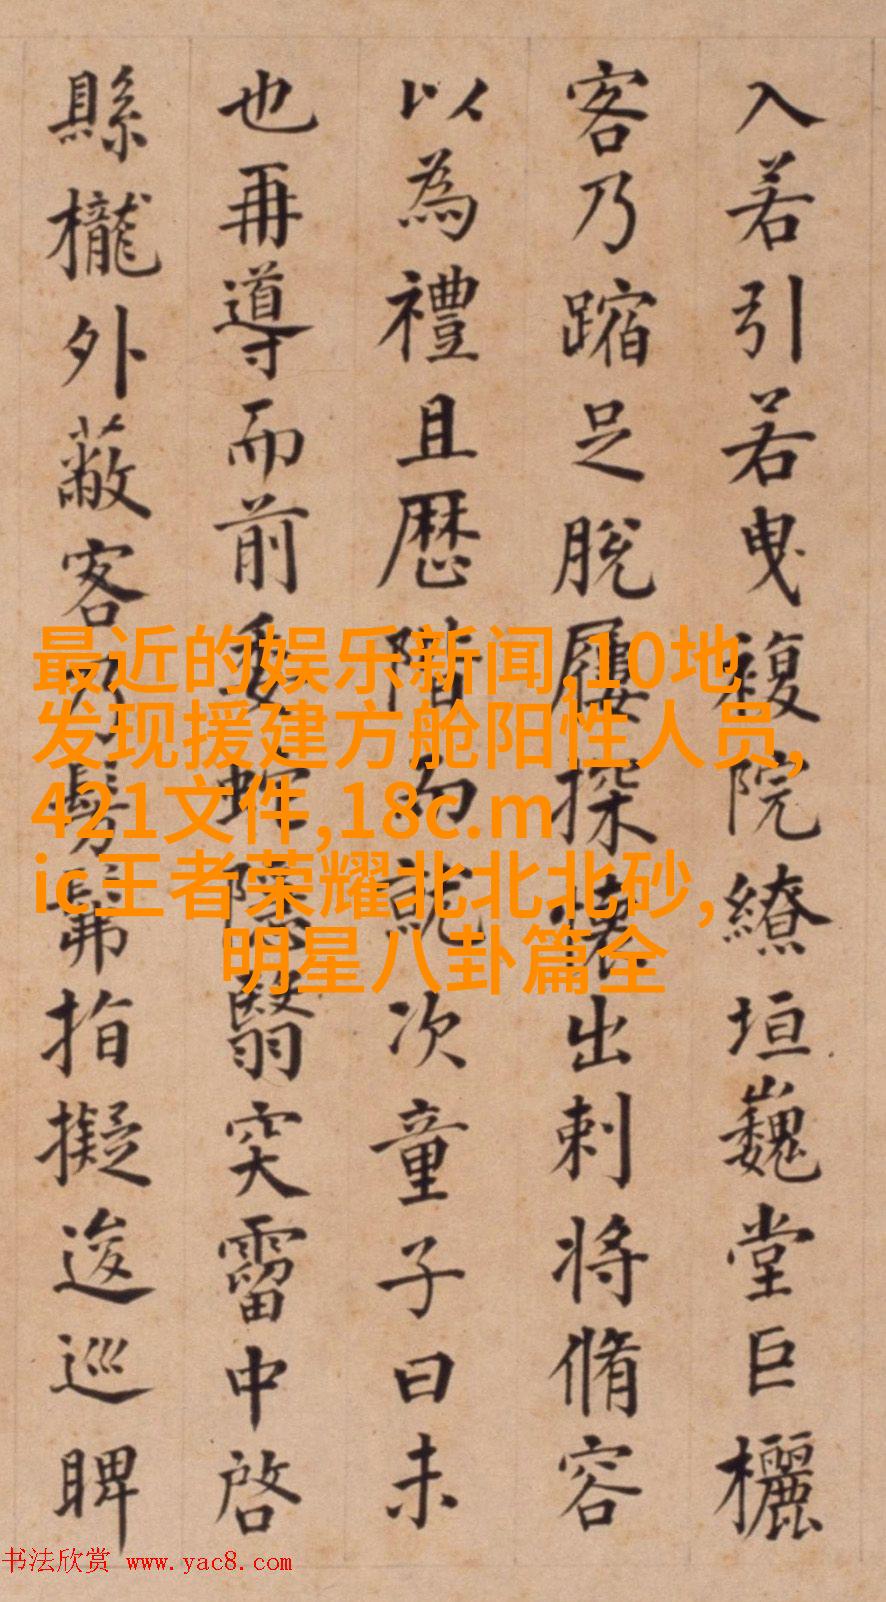 入若引若曳複院繚垣巍堂巨欐
客乃蹜足脫屨探懷出刺将脩容
以為禮且歷階而就次童子曰未
也再導而前委蛇隱翳突霤中啓
縣櫳外蔽客乃髣髴指擬逡巡睥
最近的娱乐新闻,10地
发现援建方舱阳性人员,
421文件,18c.m
ic王者荣耀北北北砂,
明星八卦篇全
书法欣赏 www.yac8.com